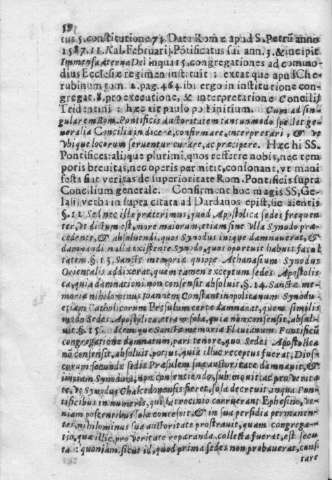 18
tus 5. constitutione 73. Data Romæ apud S. Petrum anno
1587. 11. Kal. Februarij. Pōtificatus sui ann. 3. & incipit
Immensa Æterna Dei inquit 15. congregationes ad commo-
dius Ecclesiæ regimen instituit: extat que apud Che-
rubinum tom. 2. pag. 464. ibi ergo in institutione con-
gregat. 8. pro executione, & interpretatione Concilij
Tridentini: hæc ait paulo post initium. Cum ad singu-
larem Rom. Pontificis auctoritatem tantummodo spectet gene-
ralia Concilia indicere, confirmare, interpretari, & vt
vbique locorum seruentur curare, ac præcipere. Hæc hi SS.
Pontifices: aliique plurimi, quos referre nobis, nec tem-
poris breuitas, nec operis permittit, consonant, vt mani
festa fiat veritas de superioritate Rom. Pontificis supra
Concilium generale. Confirment hoc magis SS, Ge-
lasij verba in supra citata ad Dardanos epist. sic aientis
§. 12 Sed nec illa præterimus, quod, Apostolica sedes frequen
ter, vt dictum est, more maiorum, etiam sine vlla Synodo præ-
cedente, & absoluendi, quos Synodus inique damnauerat, &
damnandi nulla existente Synodo, quos oportuit habuit facul-
tatem. §. 13. Sanctæ memoria quippe Athanasium Synodus
Orientalis addixerat, quem tamen exceptum sedes Apostoli-
ca, quia damnationi non consensit absoluit. §. 14. Sanctæ me-
moria nihilominus Ioannem Constantinopolitanum Synodus
etiam Catholicorum Præsulum certe damnarat, quem simili
modo sedes Apostolica, etiam sola, quia non consensit, absol-
uit. §. 15. Itemque Sanctæ memoria Flauianum Pontificum
congregatione damnatum, pari tenore, quo Sedes Apostolica
nō consensit, absoluit, potius, quia illuc receptus fuerat, Dios-
corum secundæ sedis Præsulem sua auctoritate damnauit, &
impiam Synodum, non consentiendo, sub
vt Synodus Chalcedonensis fieret, sola decreuit, inqua Pon-
tificibus innumeris, qui latrocinio corruerant Ephesino, ve-
niam poscentibus sola concessit, & in sua perfidia permanen-
tes, nihilominus sua auctoritate prostrauit, quam congrega-
tio, quæ illic pro veritate reparanda, collecta fuerat, est secu-
ta: quoniam, sicut id, quod prima sedes non probauerat, const
tare